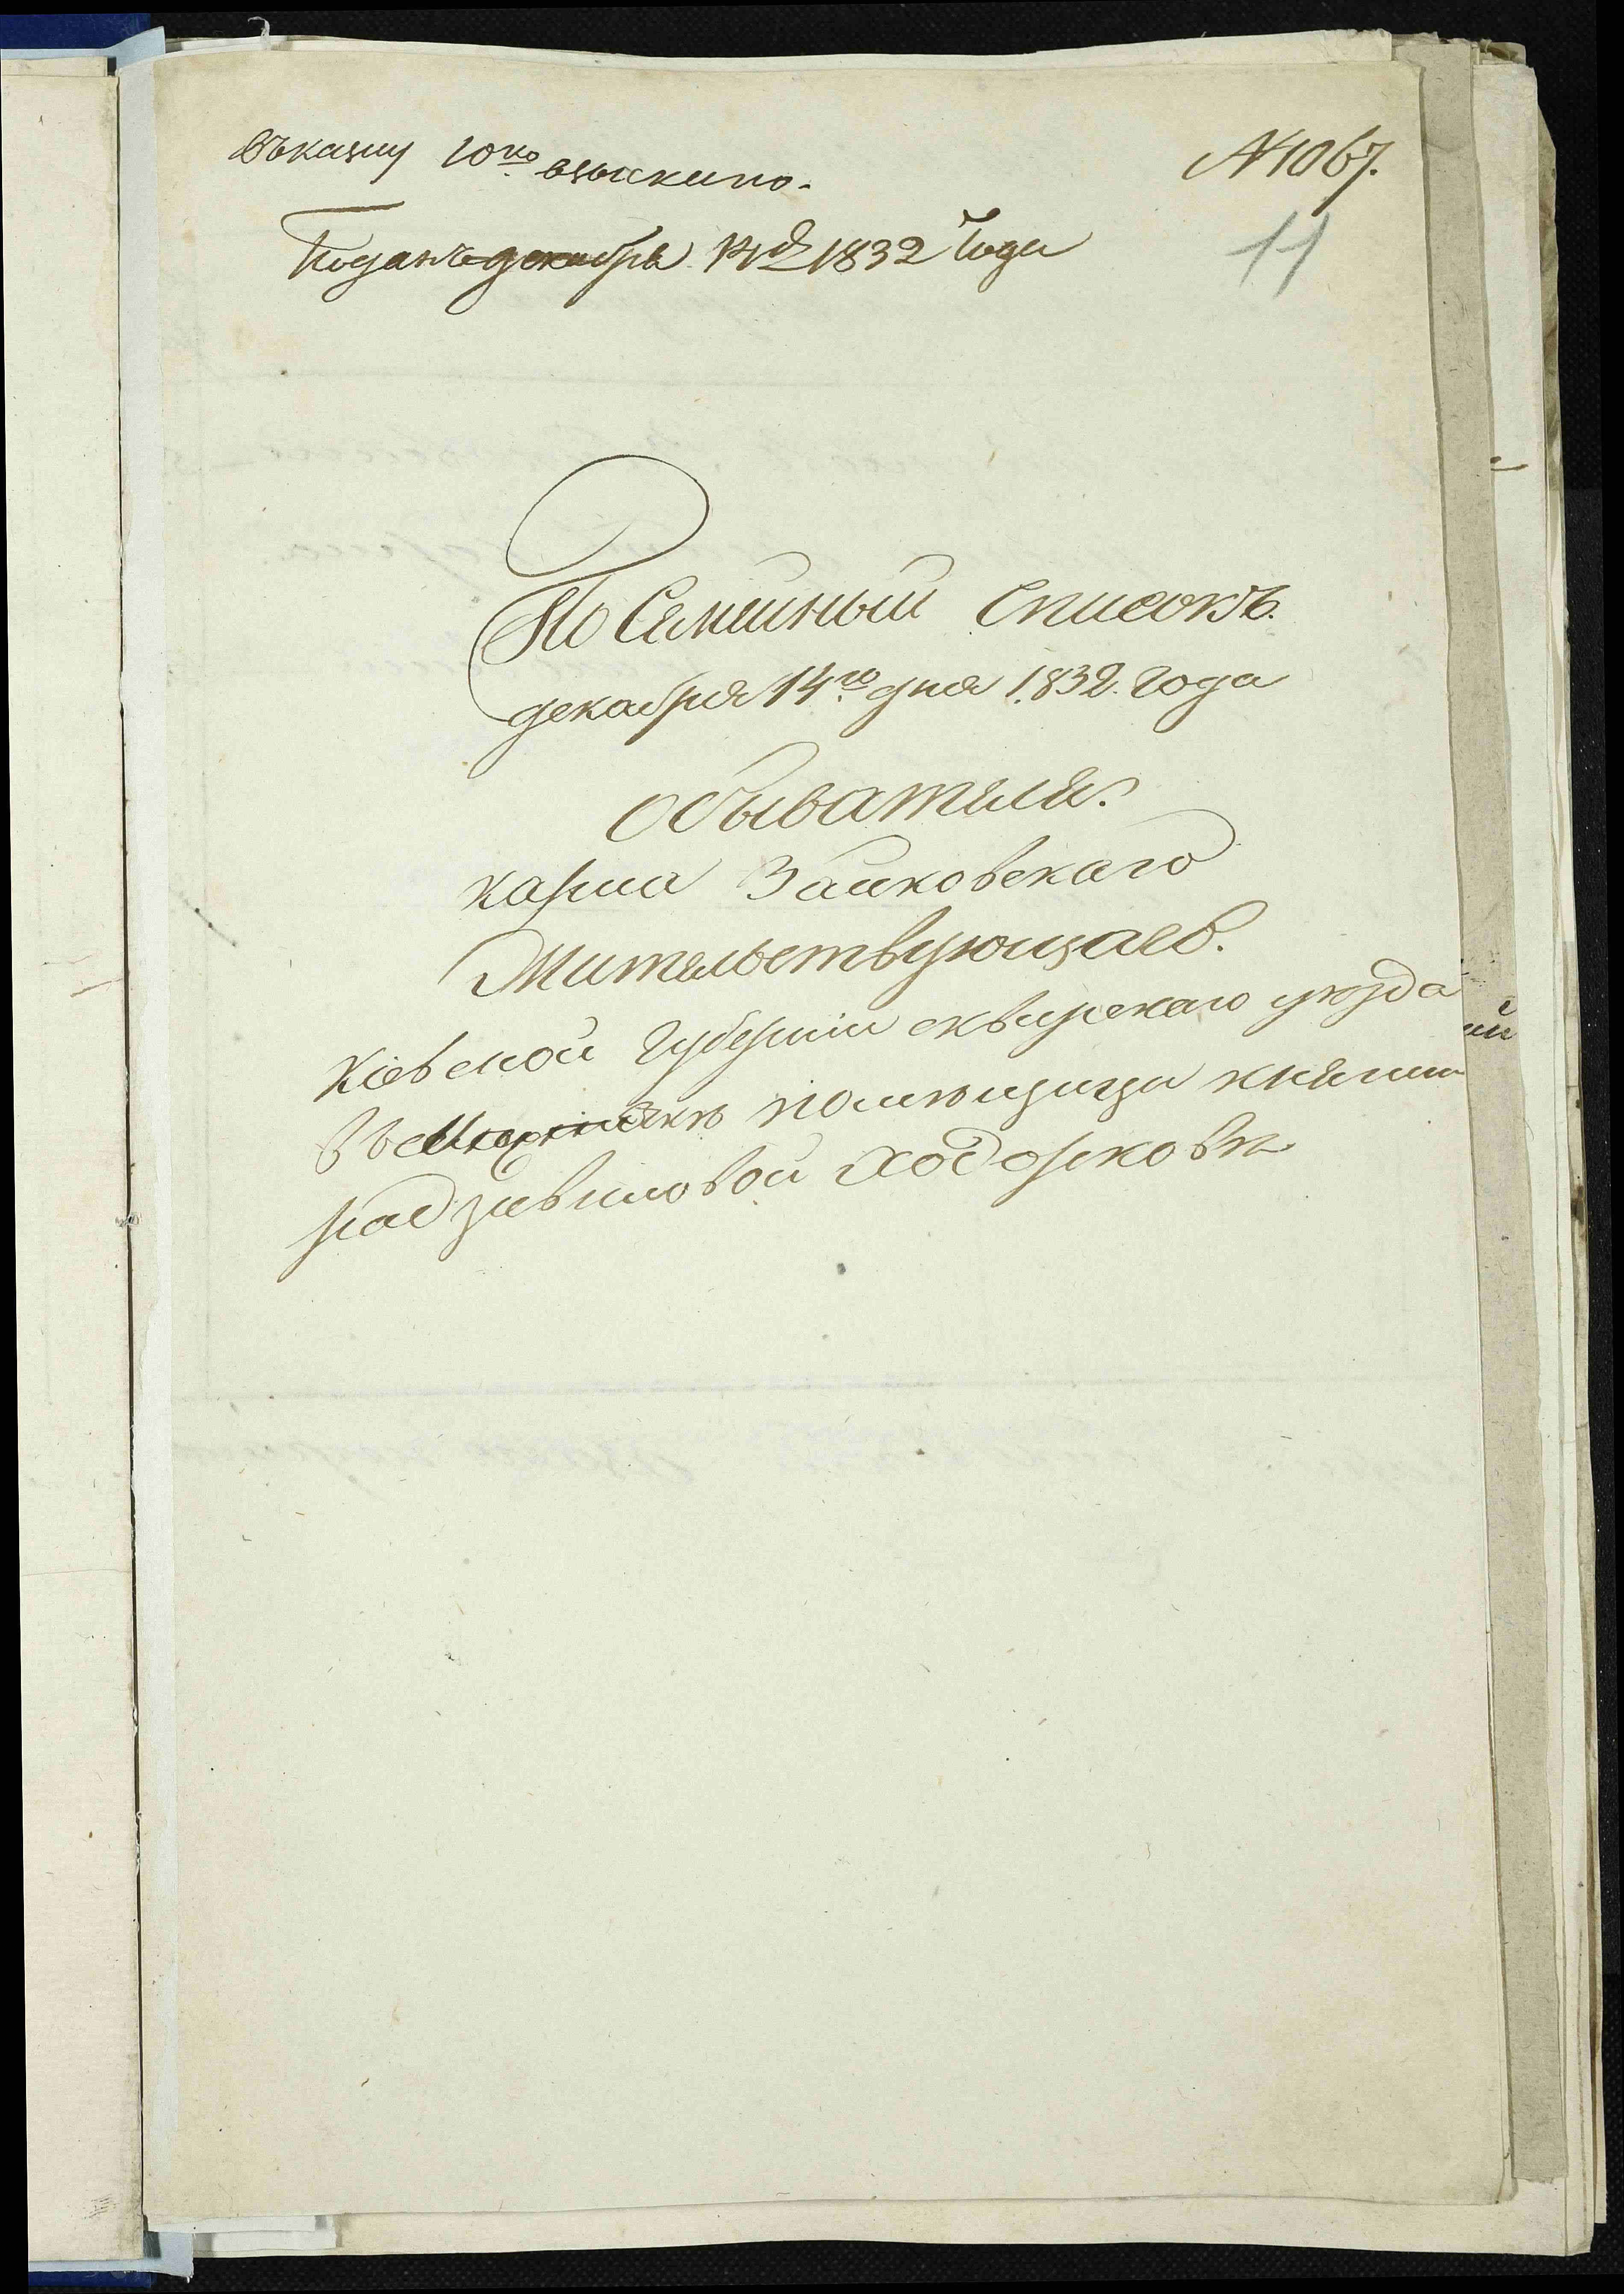 Въ казну 10ко взыскано.
№ 1067.
Поданъ декабря 14 д 1832 Года
11
По Семейный Списокъ.
декабря 14го дня 1832. года
Обывателя.
карла Зайковскаго
Жительствующаго.
Кіевской Губерніи сквирскаго уѣзда
Въ помѣщицы княгини
радзивиловой Ходорковѣ